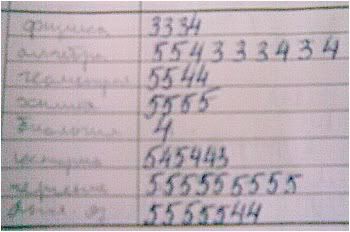 физика 3334
алгебра 554333434
геометрия 5544
химия 5555
биология 4
история 545443
черчение 555555555
5555544